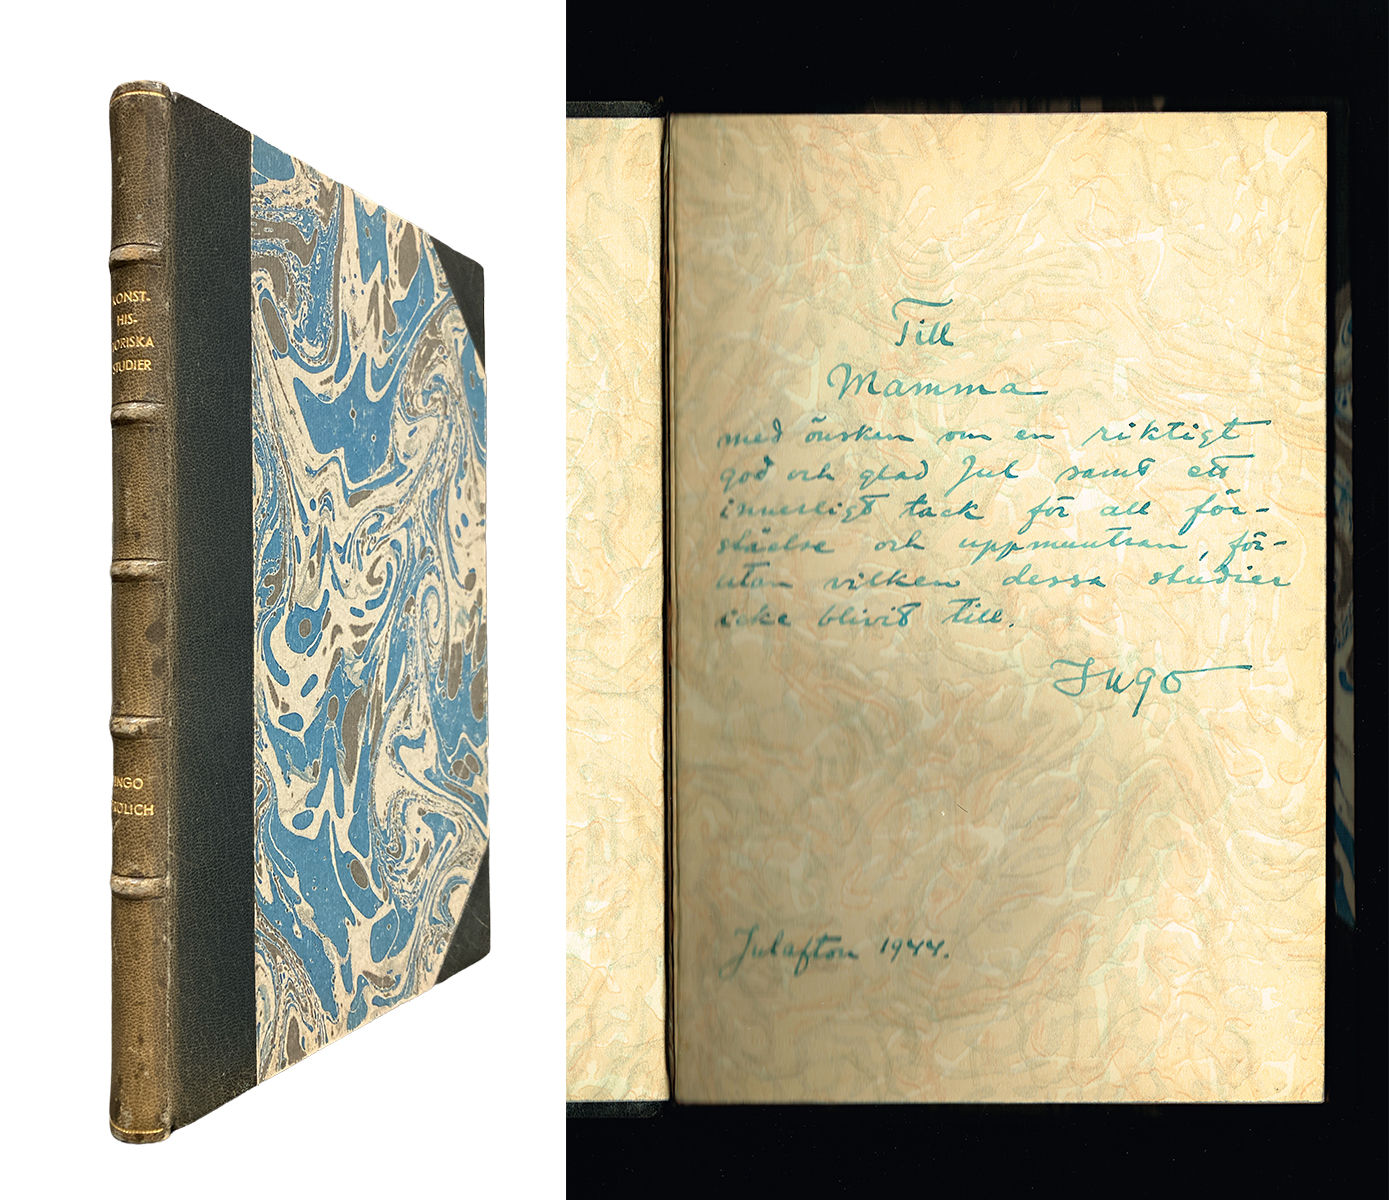 KONST-
HIS-
TORISKA
STUDIER
INGO
Till
Mamma
med önsken om en riktigt
god och glad Jul samt ett
innerligt tack för all för-
ståelse och uppmuntran, för-
utan vilken dessa studier
icke blivit till.
Ingo
Julafton 1944.